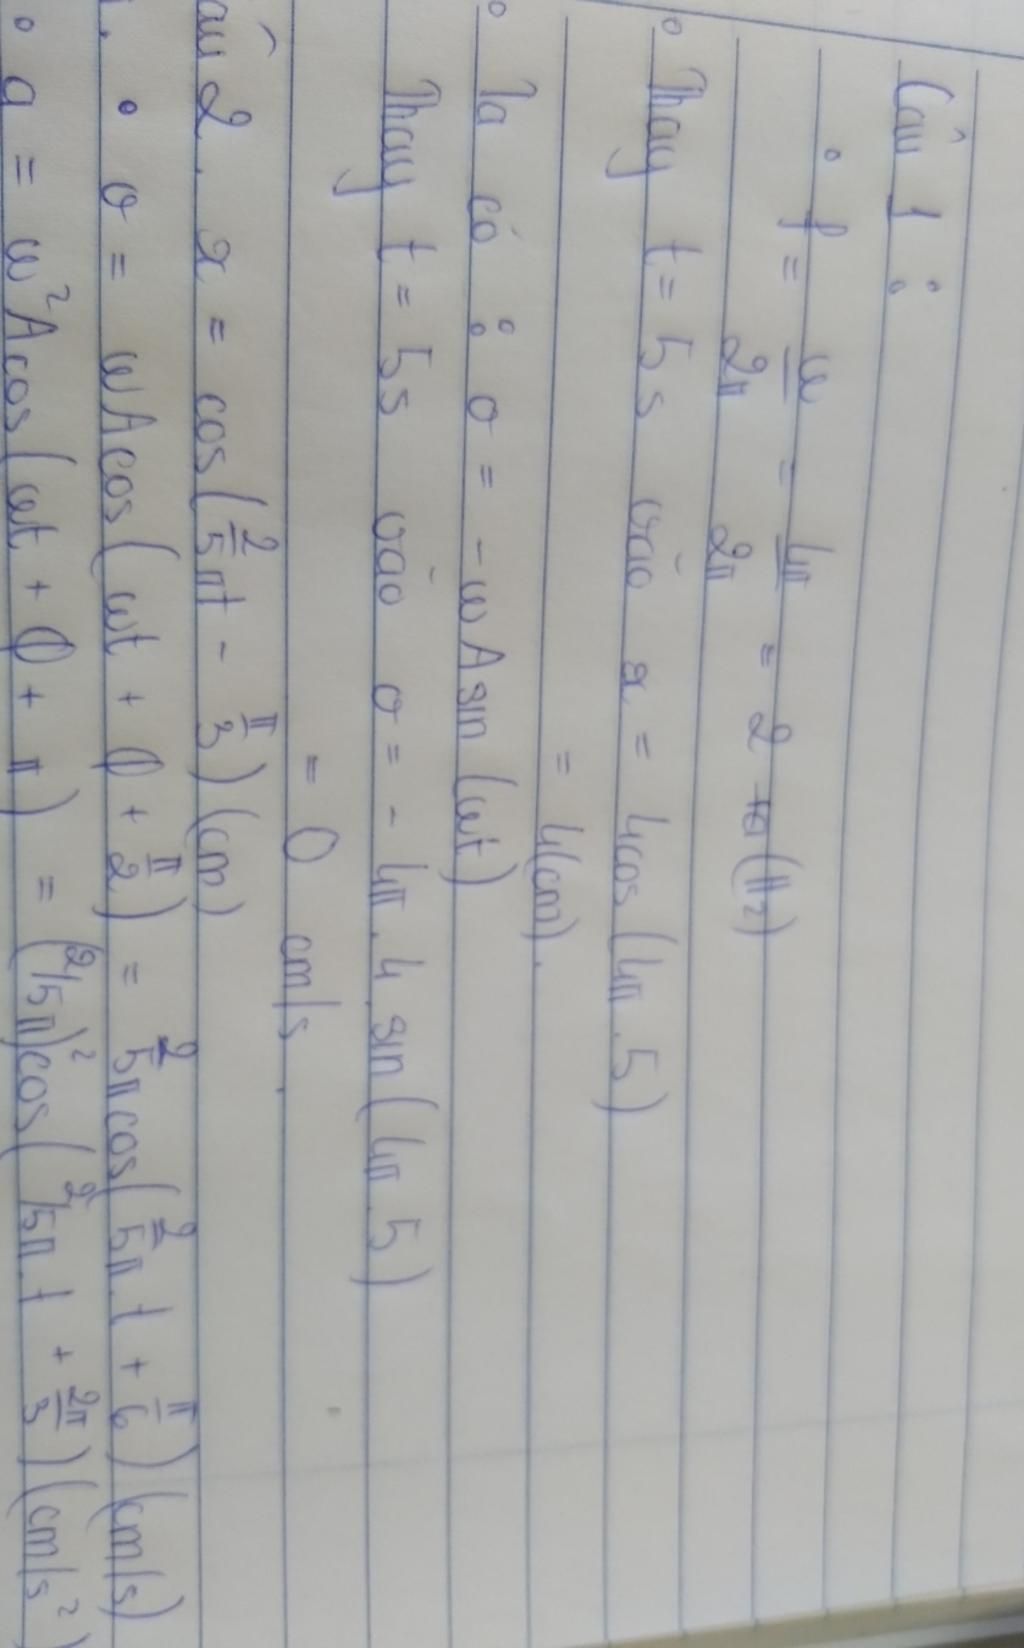 Câu 1 :
• f = ω/2π = 4π/2π = 2 (Hz)
• Thay t = 5s vào x = 4cos(4π.5)
= 4(cm).
• Ta có : v = -ωAsin(ωt)
Thay t = 5s vào v = - 4π.4.sin(4π.5)
= 0 cm/s.
âu 2. x = cos(2/5πt - π/3) (cm)
1. • v = ωAcos(ωt + φ + π/2) = 2/5πcos(2/5π.t + π/6) (cm/s)
• a = ω²Acos(ωt + φ + π) = (2/5π)²cos(2/5π.t + 2π/3) (cm/s²)